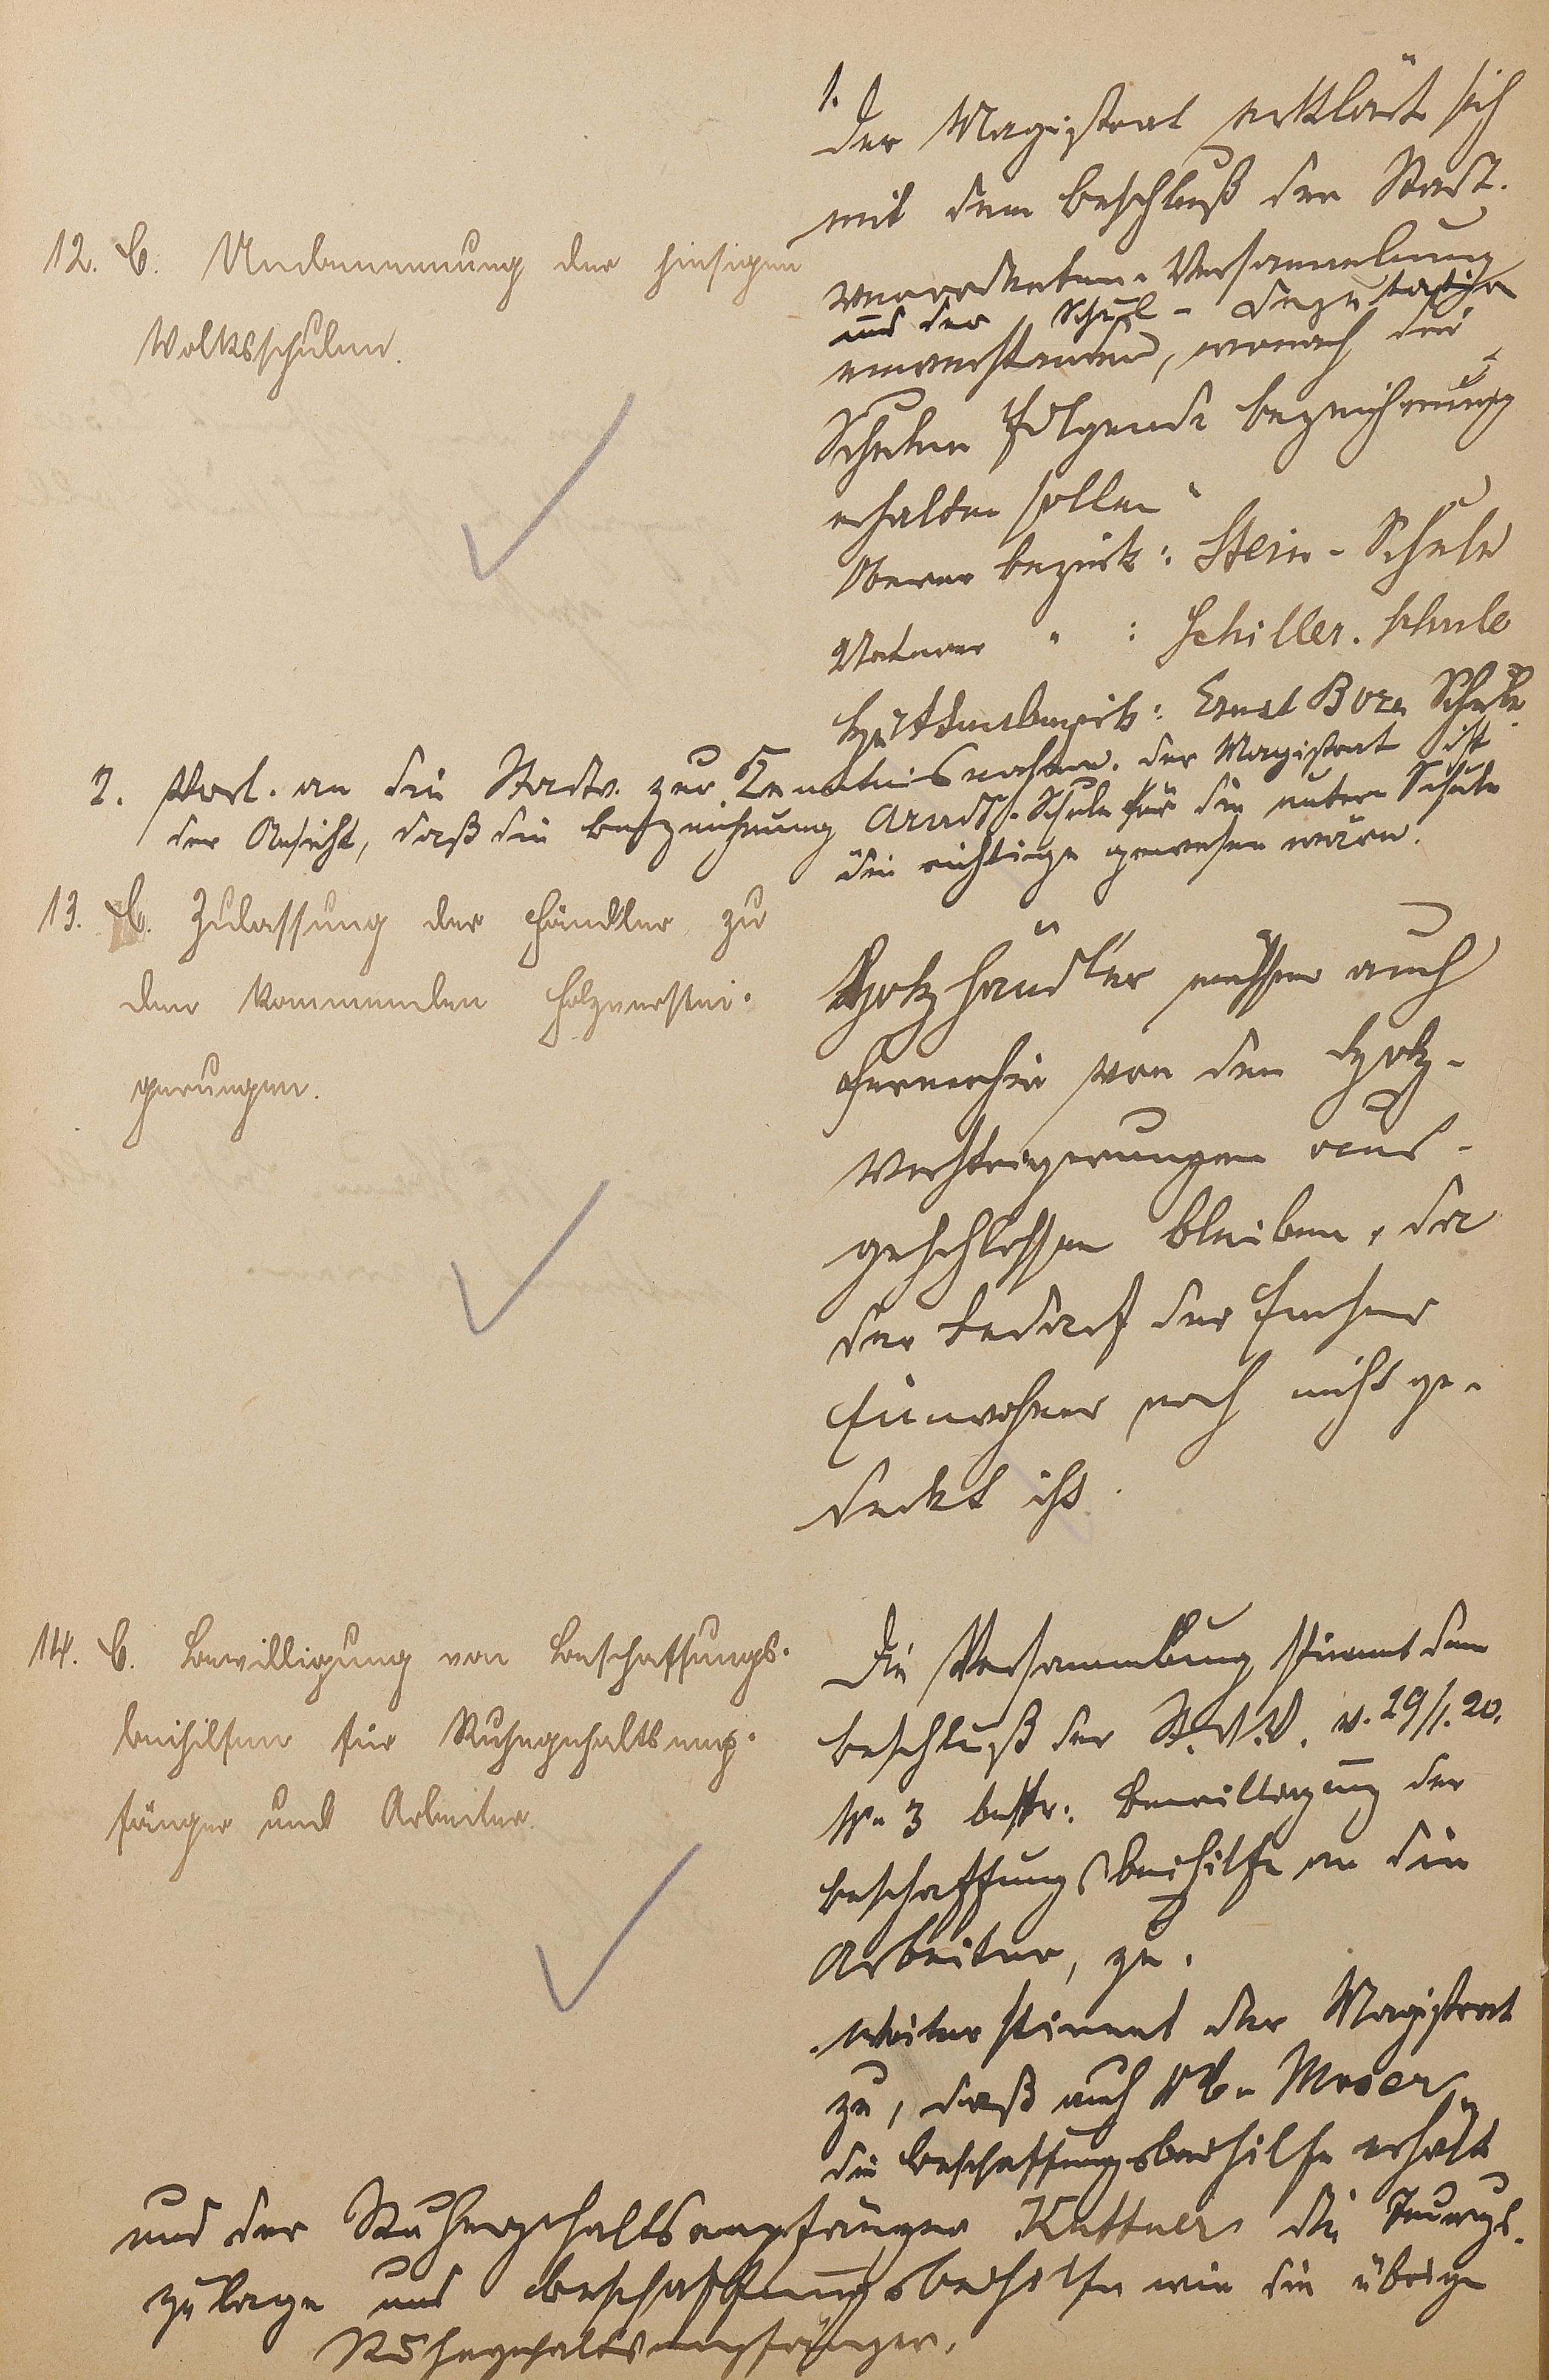 12. C. Umbenennung der hiesigen
Volksschulen.
1.
Der Magistrat erklärt sich
mit dem Beschluß der Stadt-
verordneten-Versammlung
und der Schul-Deputation
einverstanden, wonach die
Schulen folgende Bezeichnung
erhalten sollen:
Oberer Bezirk: Stein-Schule
Unterer " : Schiller-Schule
Hüttenbezirk: Ernst Born Schule.
2. Vorl. an die Stadtv. zur Kenntnisnahme. Der Magistrat ist
der Ansicht, daß die Bezeichnung Arndt-Schule für die untere Schule
die richtige gewesen wäre.
13. C. Zulassung der Händler zu
den kommenden Holzverstei-
gerungen.
Holzhändler müssen auch
fernerhin von den Holz-
versteigerungen aus-
geschlossen bleiben, da
der Bedarf der
Einwohner noch nicht ge-
deckt ist.
14. C. Bewilligung von Beschaffungs-
beihilfen für Ruhegehaltsemp-
fänger und Arbeiter.
Die Versammlung stimmt dem
Beschluß der St.V.V. v. 29/1.20.
No 3 betr. Bewilligung der
Beschaffungsbeihilfe an die
Arbeiter, zu.
Weiter stimmt der Magistrat
zu, daß auch Moser
die Beschaffungsbeihilfe erhält
und der Ruhegehaltsempfänger Kuttner die Teuergs-
zulage und Beschaffungsbeihilfe wie die übrige
Ruhegehaltsempfänger.